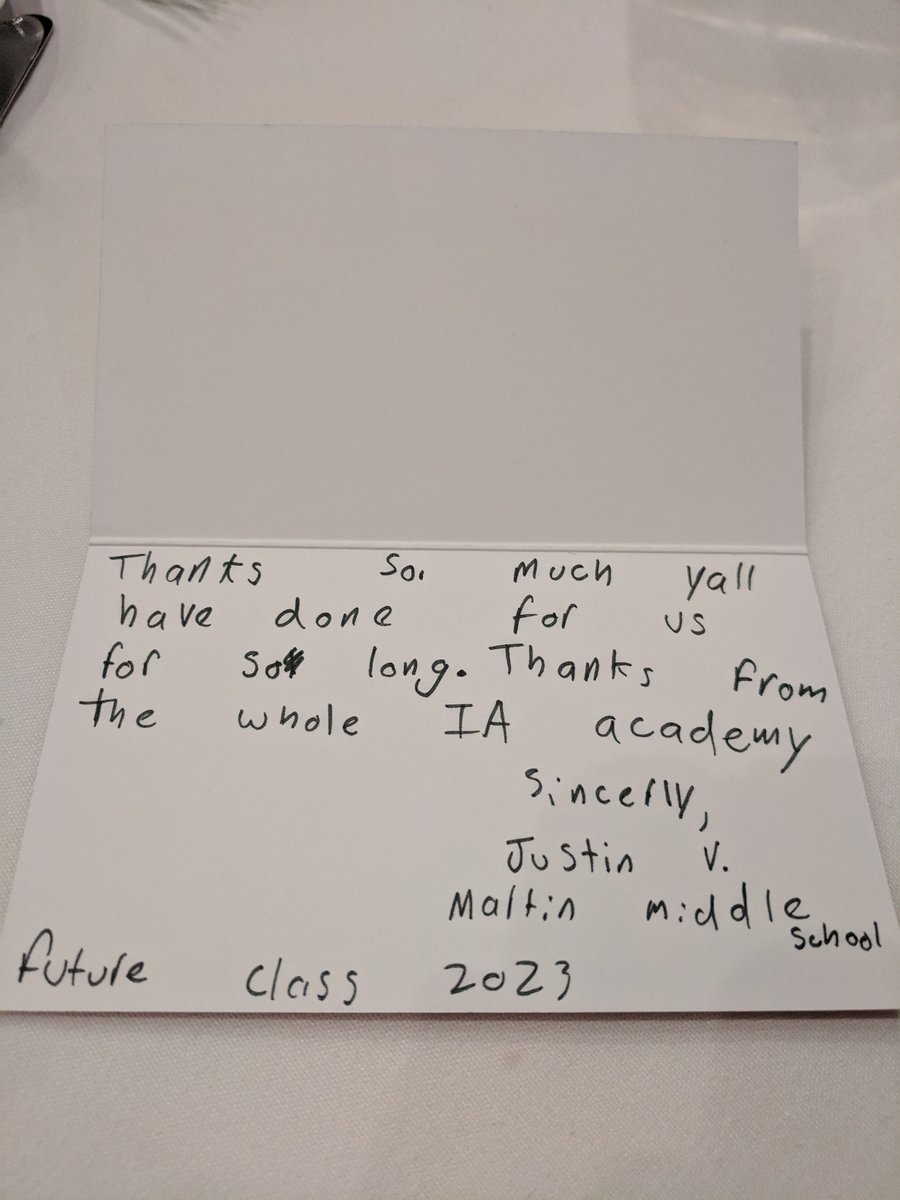 Thanks so. much yall
have done for us
for so long. Thanks from
the whole IA academy
Sincerly,
Justin V.
Martin middle
school
future class 2023